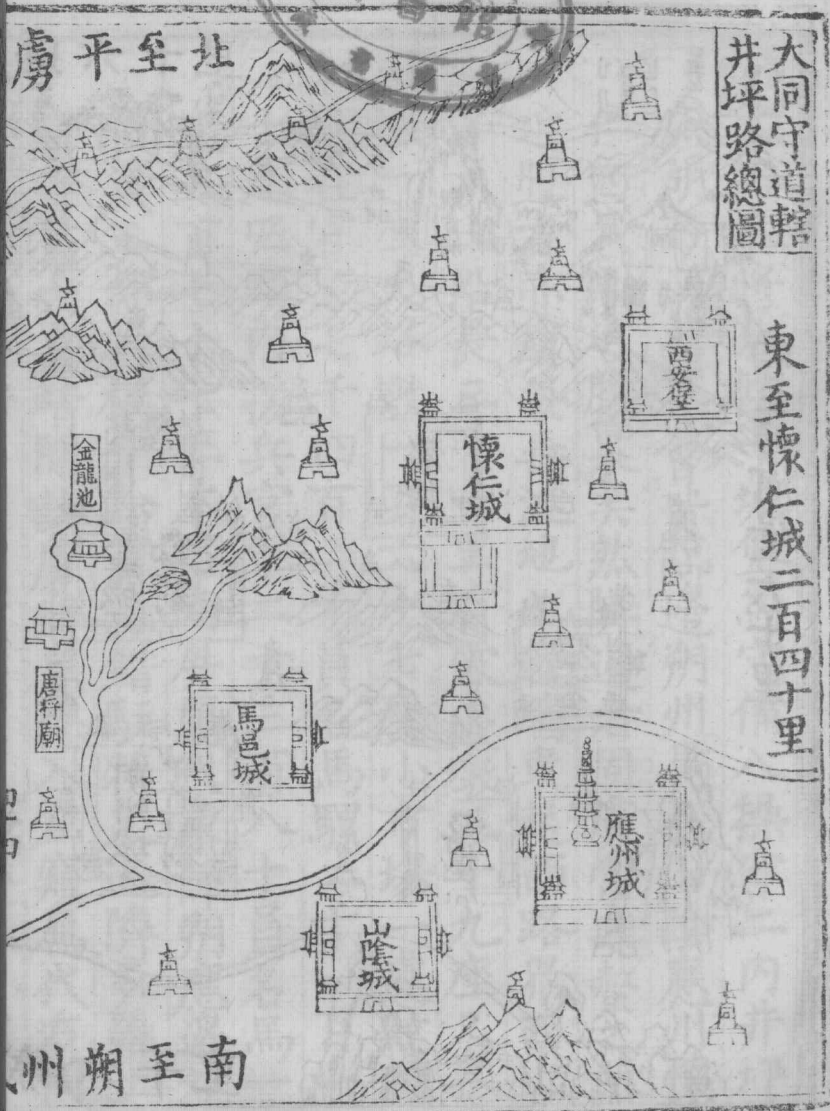 大同守道轄
井坪路總圖
東至懷仁城二百四十里
北至平虜
西安堡
懷仁城
金龍池
唐將廟
馬邑城
應州城
山陰城
南至朔州